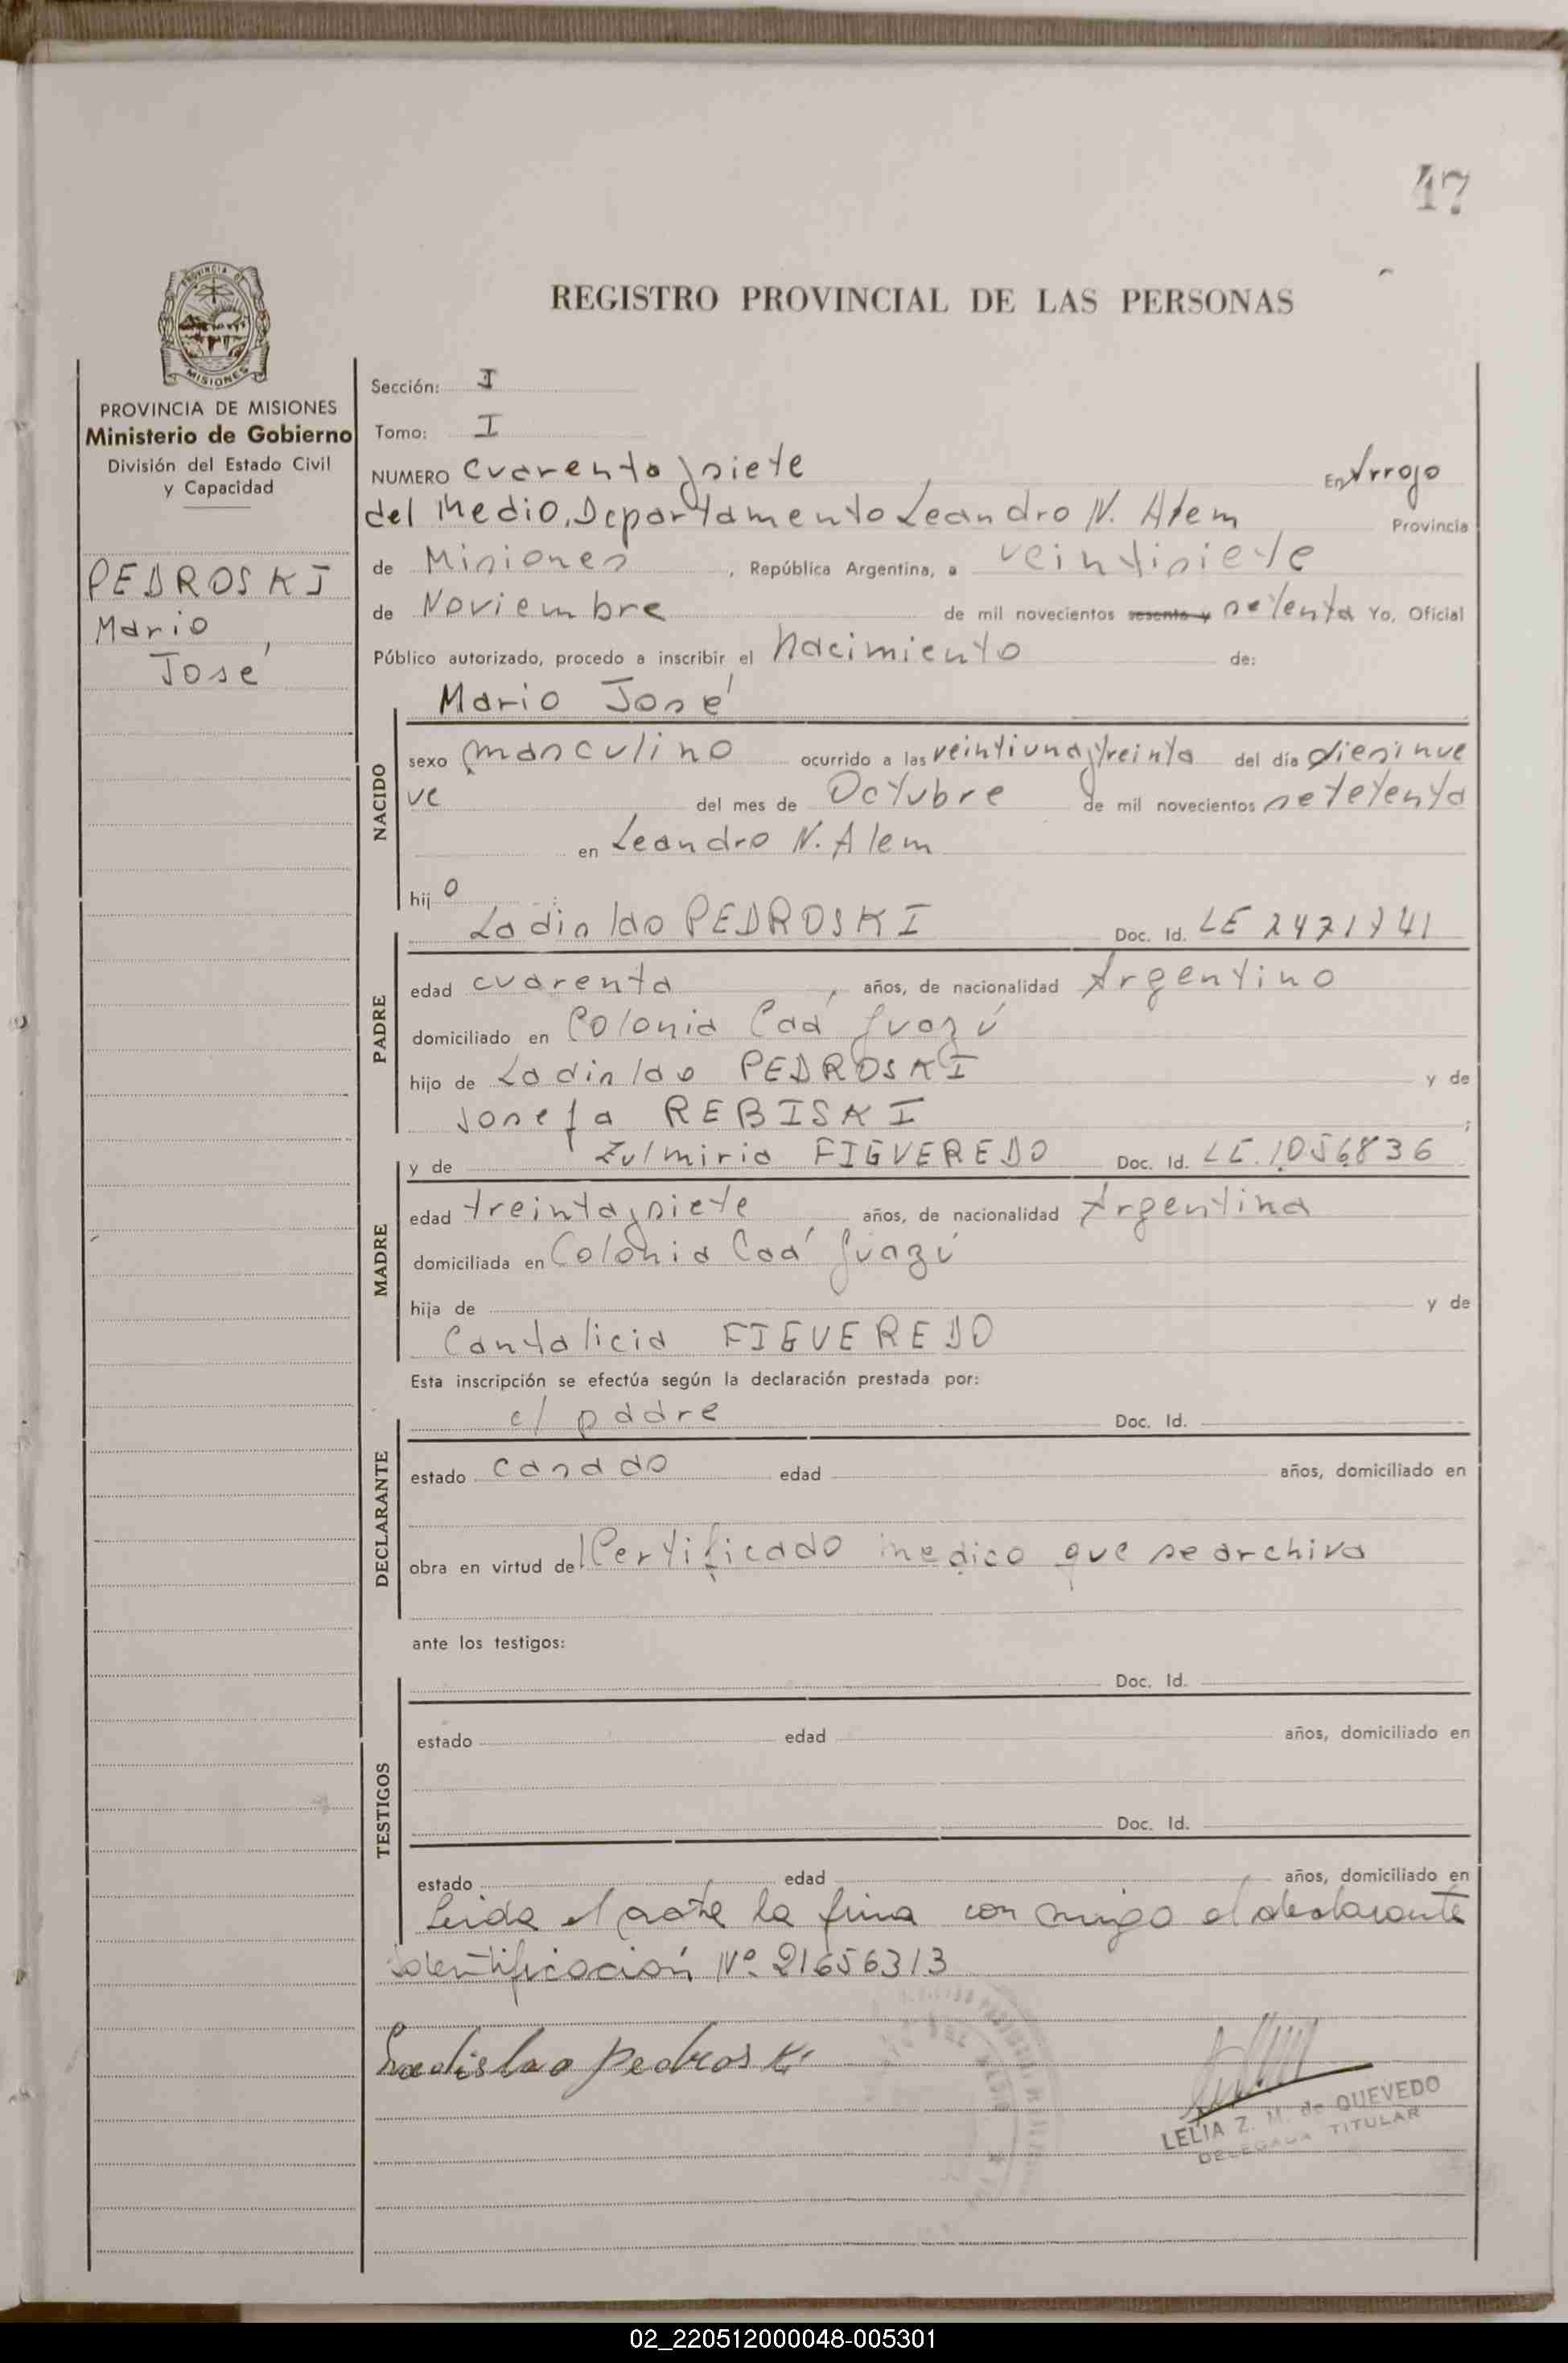 47
PROVINCIA DE
MISIONES
REGISTRO PROVINCIAL DE LAS PERSONAS
PROVINCIA DE MISIONES
Ministerio de Gobierno
División del Estado Civil
y Capacidad
PEDROSKI
Mario
José
Sección: I
Tomo: I
NUMERO Cuarenta y siete En Arroyo
del Medio, Departamento Leandro N. Alem Provincia
de Misiones, República Argentina, a veintisiete
de Noviembre de mil novecientos sesenta y setenta Yo, Oficial
Público autorizado, procedo a inscribir el nacimiento de:
Mario José
NACIDO
sexo masculino ocurrido a las veintiuna y treinta del día diesinue
ve del mes de Octubre de mil novecientos setetenta
en Leandro N. Alem
hijo
Ladislao PEDROSKI Doc. Id. LE
PADRE
edad cuarenta, años, de nacionalidad Argentino
domiciliado en Colonia Caá Guazú
hijo de Ladislao PEDROSKI y de
Josefa REBISKI;
y de Zulmiria FIGUEREDO Doc. Id. LC. 1.056.836
MADRE
edad treinta y siete años, de nacionalidad Argentina
domiciliada en Colonia Caá Guazú
hija de y de
Cantalicia FIGUEREDO
Esta inscripción se efectúa según la declaración prestada por:
el padre Doc. Id.
DECLARANTE
estado casado edad años, domiciliado en
obra en virtud del Certificado medico que se archiva
ante los testigos:
Doc. Id.
TESTIGOS
estado edad años, domiciliado en
Doc. Id.
estado edad años, domiciliado en
Leida el acta la firma con migo el declarante
identificación Nº 21656313
Ladislao Pedroski
LELIA Z. M. de QUEVEDO
DELEGADA TITULAR
02_220512000048-005301